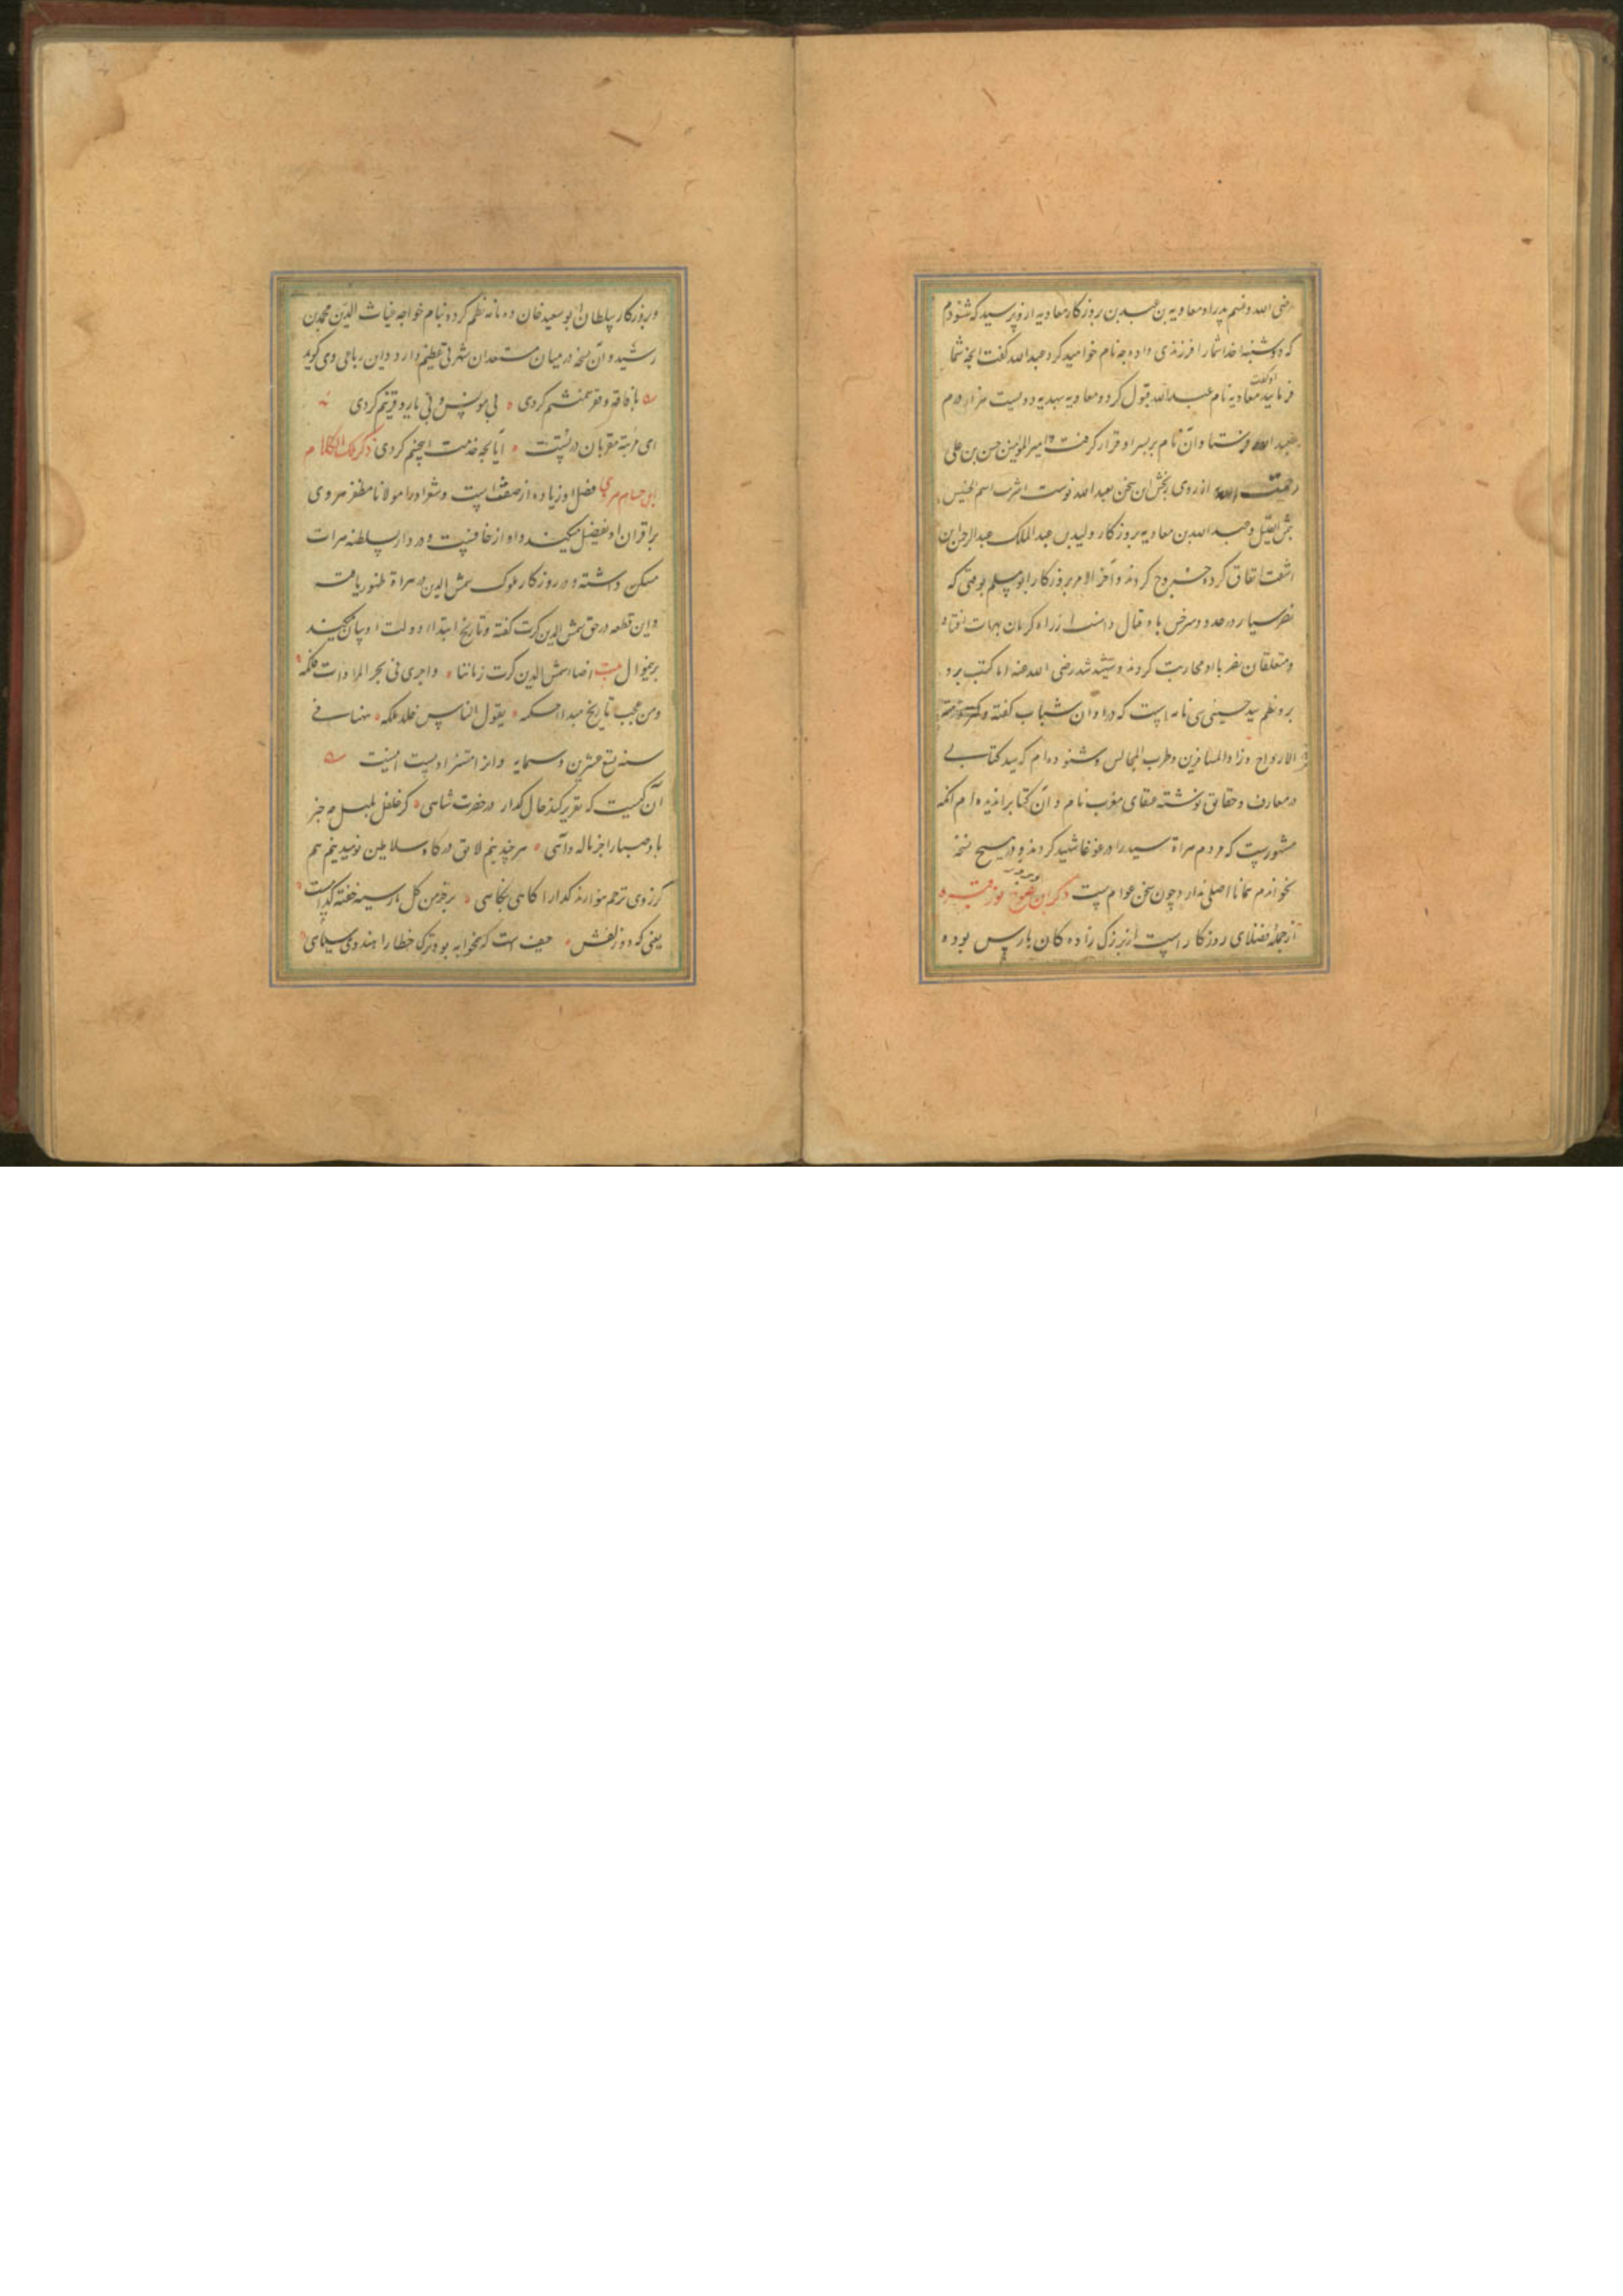 رضی الله عنهم پدر او معاویه بن عبد بن روزکار معاویه ازو پرسید که شنودم
که دوشنبه خدا شما را فرزندی داده چه نام خوامید کرد عبد الله کفت انچه شما
فرمایید معاویه نام عبد الله قبول کرد و معاویه بهدیه دویست هزار درم
او کفت
بعبد الله فرستاد و آن نام بر پسر او قرار کرفت امیر المؤمنین حسن بن علی
از روی رنجش این سخن بعبد الله نوشت اشرت اسم الخسیس
بثمن القلیل و عبد الله بن معاویه بروزکار ولید بن عبد الملک عبد الرحمن بن
اشعث اتفاق کرده خروج کردند و آخر الامر بروزکار ابو مسلم بوقتی که
نصر سیار در حدود سرخس با او قتال داشت از راه کرمان بهرات افتاد
و متعلقان نصر با او محاربت کردند و شهید شد رضی الله عنه اما کتب
نظم سید حسینی سی نامه است که در اوان شباب کفته و
الارواح و زاد المسافرین و طرب المجالس و شنوده ام که سید کتابی
در معارف و حقایق نوشته عنقای مغرب نام و آن کتاب را ندیده ام آنکه
مشهورست که مردم هراة سید را در غوغا شهید کردند و در هیچ نسخه
نخواندم همانا اصلی ندارد چون سخن عوام ست ذکر ابن نصوح نور قبره
از جمله فضلای روزکار است از بزرک زاده کان پارس بوده
و بروزکار سلطان ابو سعید خان ده نامه نظم کرده بنام خواجه غیاث الدین محمد بن
رشید و آن نسخه در میان مستعدان شهرتی عظیم دارد و این رباعی وی کوید
با فاقه و فقر همنشینم کردی بی مونس و بی یار و قرینم کردی
این مرتبه مقربان در تست آیا بچه خدمت اینچنینم کردی ذکر ملک الکلام
ابن حسام هروی فضل او زیاده از صفتست و شعر او را مولانا مظفر هروی
بر اقران او تفضیل میکند و او از خافست و در دار سلطنه هرات
مسکن داشته و در روزکار ملوک شمس الدین در هراة ظهور یافت
و این قطعه در حق شمس الدین کرت کفته و تاریخ ابتداء دولت او بیان میکند
برینموال اضاء شمس الدین کرت زماننا و اجری فی بحر المرادات فلکه
و من عجب تاریخ مبدا حکمه یقول الناس خلد ملکه فی
سنه تسع عشرین و سبعمایه و این مستزاد اوست اینست
آن کیست که تقریر کند حال کدا را در حضرت شاهی کز غلغل بلبل چه خبر
باد صبا را جز ناله و آهی هر چند نیم لایق درکاه سلاطین نومید نیم هم
کز روی ترحم بنوازند کدا را کاهی بنکاهی بر خرمن کل مار سیه خفته کدامست
یعنی که دو زلفش حیف است که همخوابه بود ترک خطا را هندوی سیاهی